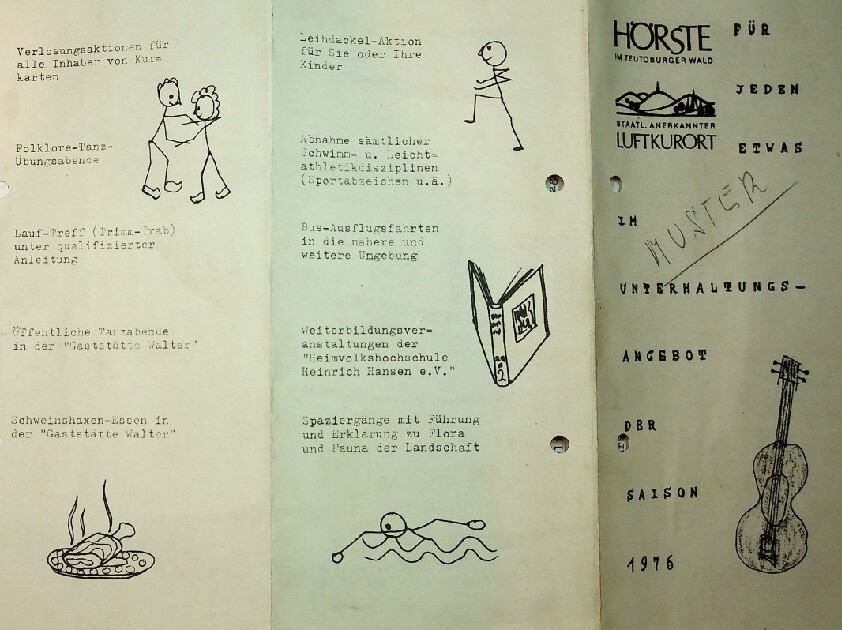 Verlosungsaktionen für
alle Inhaber von Kur=
karten
Folklore-Tanz-
Übungsabende
Lauf-Treff (Trimm-Trab)
unter qualifizierter
Anleitung
Öffentliche Tanzabende
in der "Gaststätte Walter"
Schweinshaxen-Essen in
der "Gaststätte Walter"
Leihdackel-Aktion
für Sie oder Ihre
Kinder
Abnahme sämtlicher
Schwimm- u. Leicht=
athletikdisziplinen
(Sportabzeichen u.ä.)
Bus-Ausflugsfahrten
in die nähere und
weitere Umgebung
Weiterbildungsver-
anstaltungen der
"Heimvolkshochschule
Heinrich Hansen e.V."
Spaziergänge mit Führung
und Erklärung zu Flora
und Fauna der Landschaft
HÖRSTE
IM TEUTOBURGER WALD
STAATL. ANERKANNTER
LUFTKURORT
FÜR
JEDEN
ETWAS
IM
MUSTER
UNTERHALTUNGS-
ANGEBOT
DER
SAISON
1976